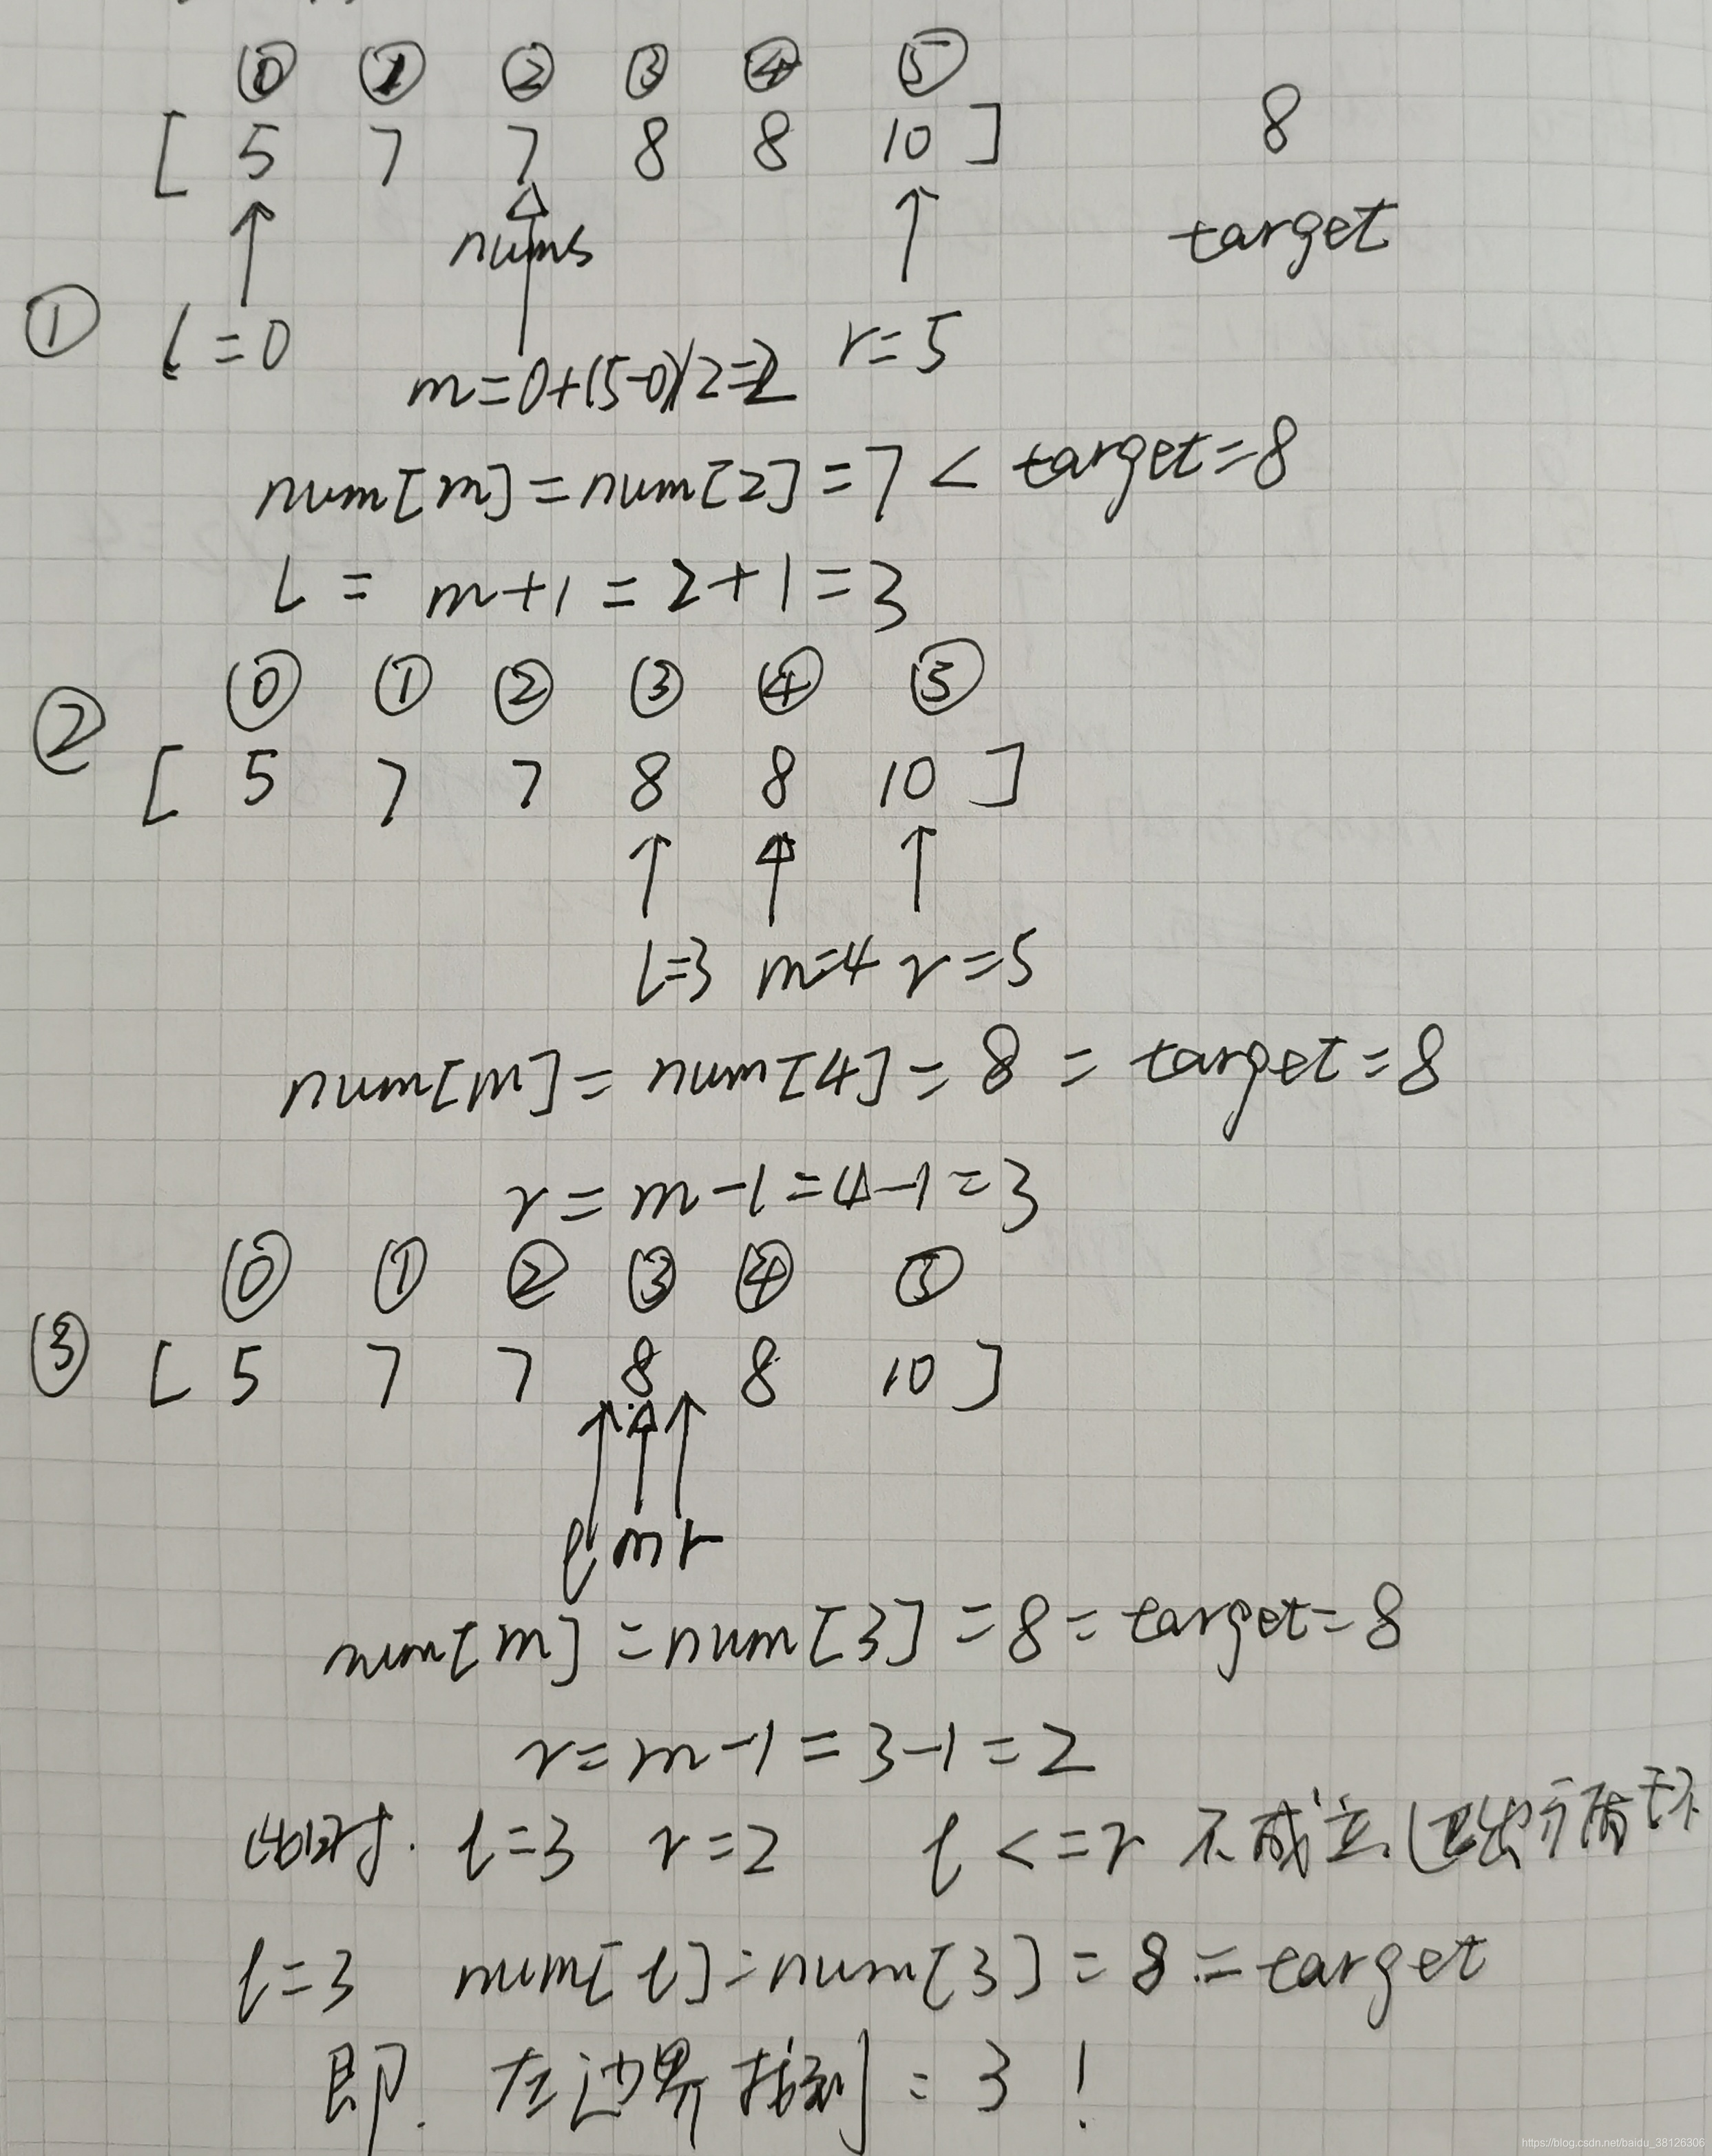 ⓪ ① ② ③ ④ ⑤
[ 5 7 7 8 8 10 ] 8
nums target
① l=0 m=0+(5-0)/2=2 r=5
num[m]=num[2]=7< target=8
L = m+1=2+1=3
⓪ ① ② ③ ④ ⑤
② [ 5 7 7 8 8 10 ]
l=3 m=4 r=5
num[m]= num[4]= 8 = target=8
r= m-1=4-1=3
⓪ ① ② ③ ④ ⑤
③ [ 5 7 7 8 8 10 ]
l m r
num[m] =num[3] =8= target=8
r=m-1=3-1=2
此时. l=3 r=2 l<=r 不成立.退出循环
l=3 num[l]=num[3]=8=target
即. 左边界找到=3!
https://blog.csdn.net/baidu_38126306